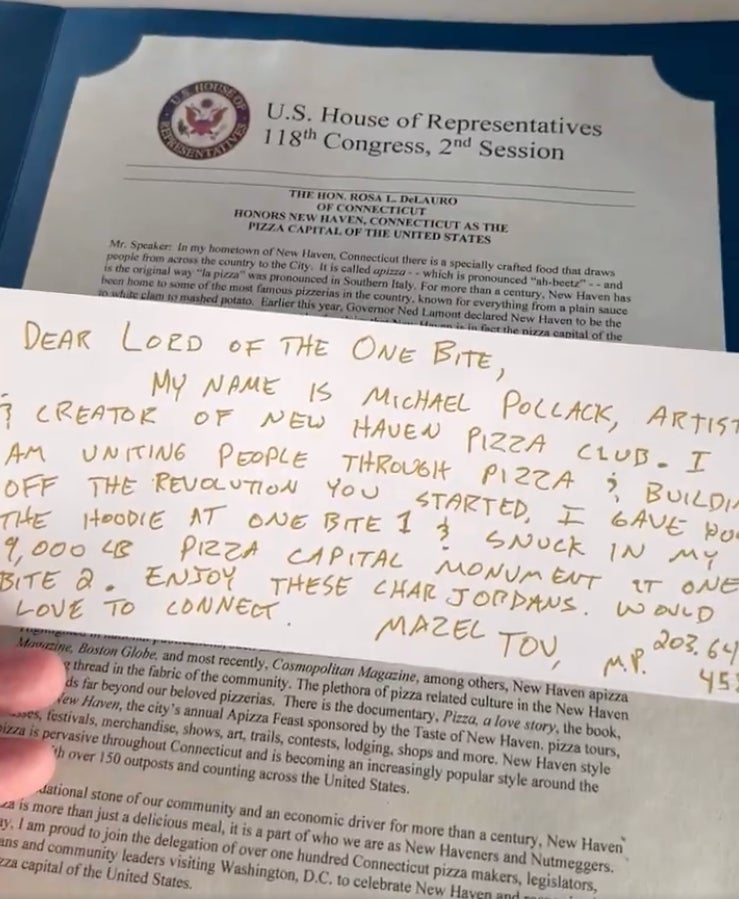 U.S. HOUSE OF
REPRESENTATIVES
U.S. House of Representatives
118th Congress, 2nd Session
THE HON. ROSA L. DeLAURO
OF CONNECTICUT
HONORS NEW HAVEN, CONNECTICUT AS THE
PIZZA CAPITAL OF THE UNITED STATES
Mr. Speaker: In my hometown of New Haven, Connecticut there is a specially crafted food that draws
people from across the country to the City. It is called apizza - - which is pronounced "ah-beetz" - - and
is the original way "la pizza" was pronounced in Southern Italy. For more than a century, New Haven has
been home to some of the most famous pizzerias in the country, known for everything from a plain sauce
to white clam to mashed potato. Earlier this year, Governor Ned Lamont declared New Haven to be the
New Haven is in fact the pizza capital of the
DEAR LORD OF THE ONE BITE,
MY NAME IS MICHAEL POLLACK, ARTIST
& CREATOR OF NEW HAVEN PIZZA CLUB. I
AM UNITING PEOPLE THROUGH PIZZA & BUILDIN
OFF THE REVOLUTION YOU STARTED, I GAVE YOU
THE HOODIE AT ONE BITE 1 & SNUCK IN MY
9,000 LB PIZZA CAPITAL MONUMENT AT ONE
BITE 2. ENJOY THESE CHAR JORDANS. WOULD
LOVE TO CONNECT.
MAZEL TOV,
M.P.
203.64
45
Magazine, Boston Globe, and most recently, Cosmopolitan Magazine, among others, New Haven apizza
thread in the fabric of the community. The plethora of pizza related culture in the New Haven
ds far beyond our beloved pizzerias. There is the documentary, Pizza, a love story, the book,
New Haven, the city's annual Apizza Feast sponsored by the Taste of New Haven, pizza tours,
festivals, merchandise, shows, art, trails, contests, lodging, shops and more. New Haven style
pizza is pervasive throughout Connecticut and is becoming an increasingly popular style around the
th over 150 outposts and counting across the United States.
dational stone of our community and an economic driver for more than a century, New Haven
za is more than just a delicious meal, it is a part of who we are as New Haveners and Nutmeggers.
ay, I am proud to join the delegation of over one hundred Connecticut pizza makers, legislators,
ans and community leaders visiting Washington, D.C. to celebrate New Haven and
zza capital of the United States.